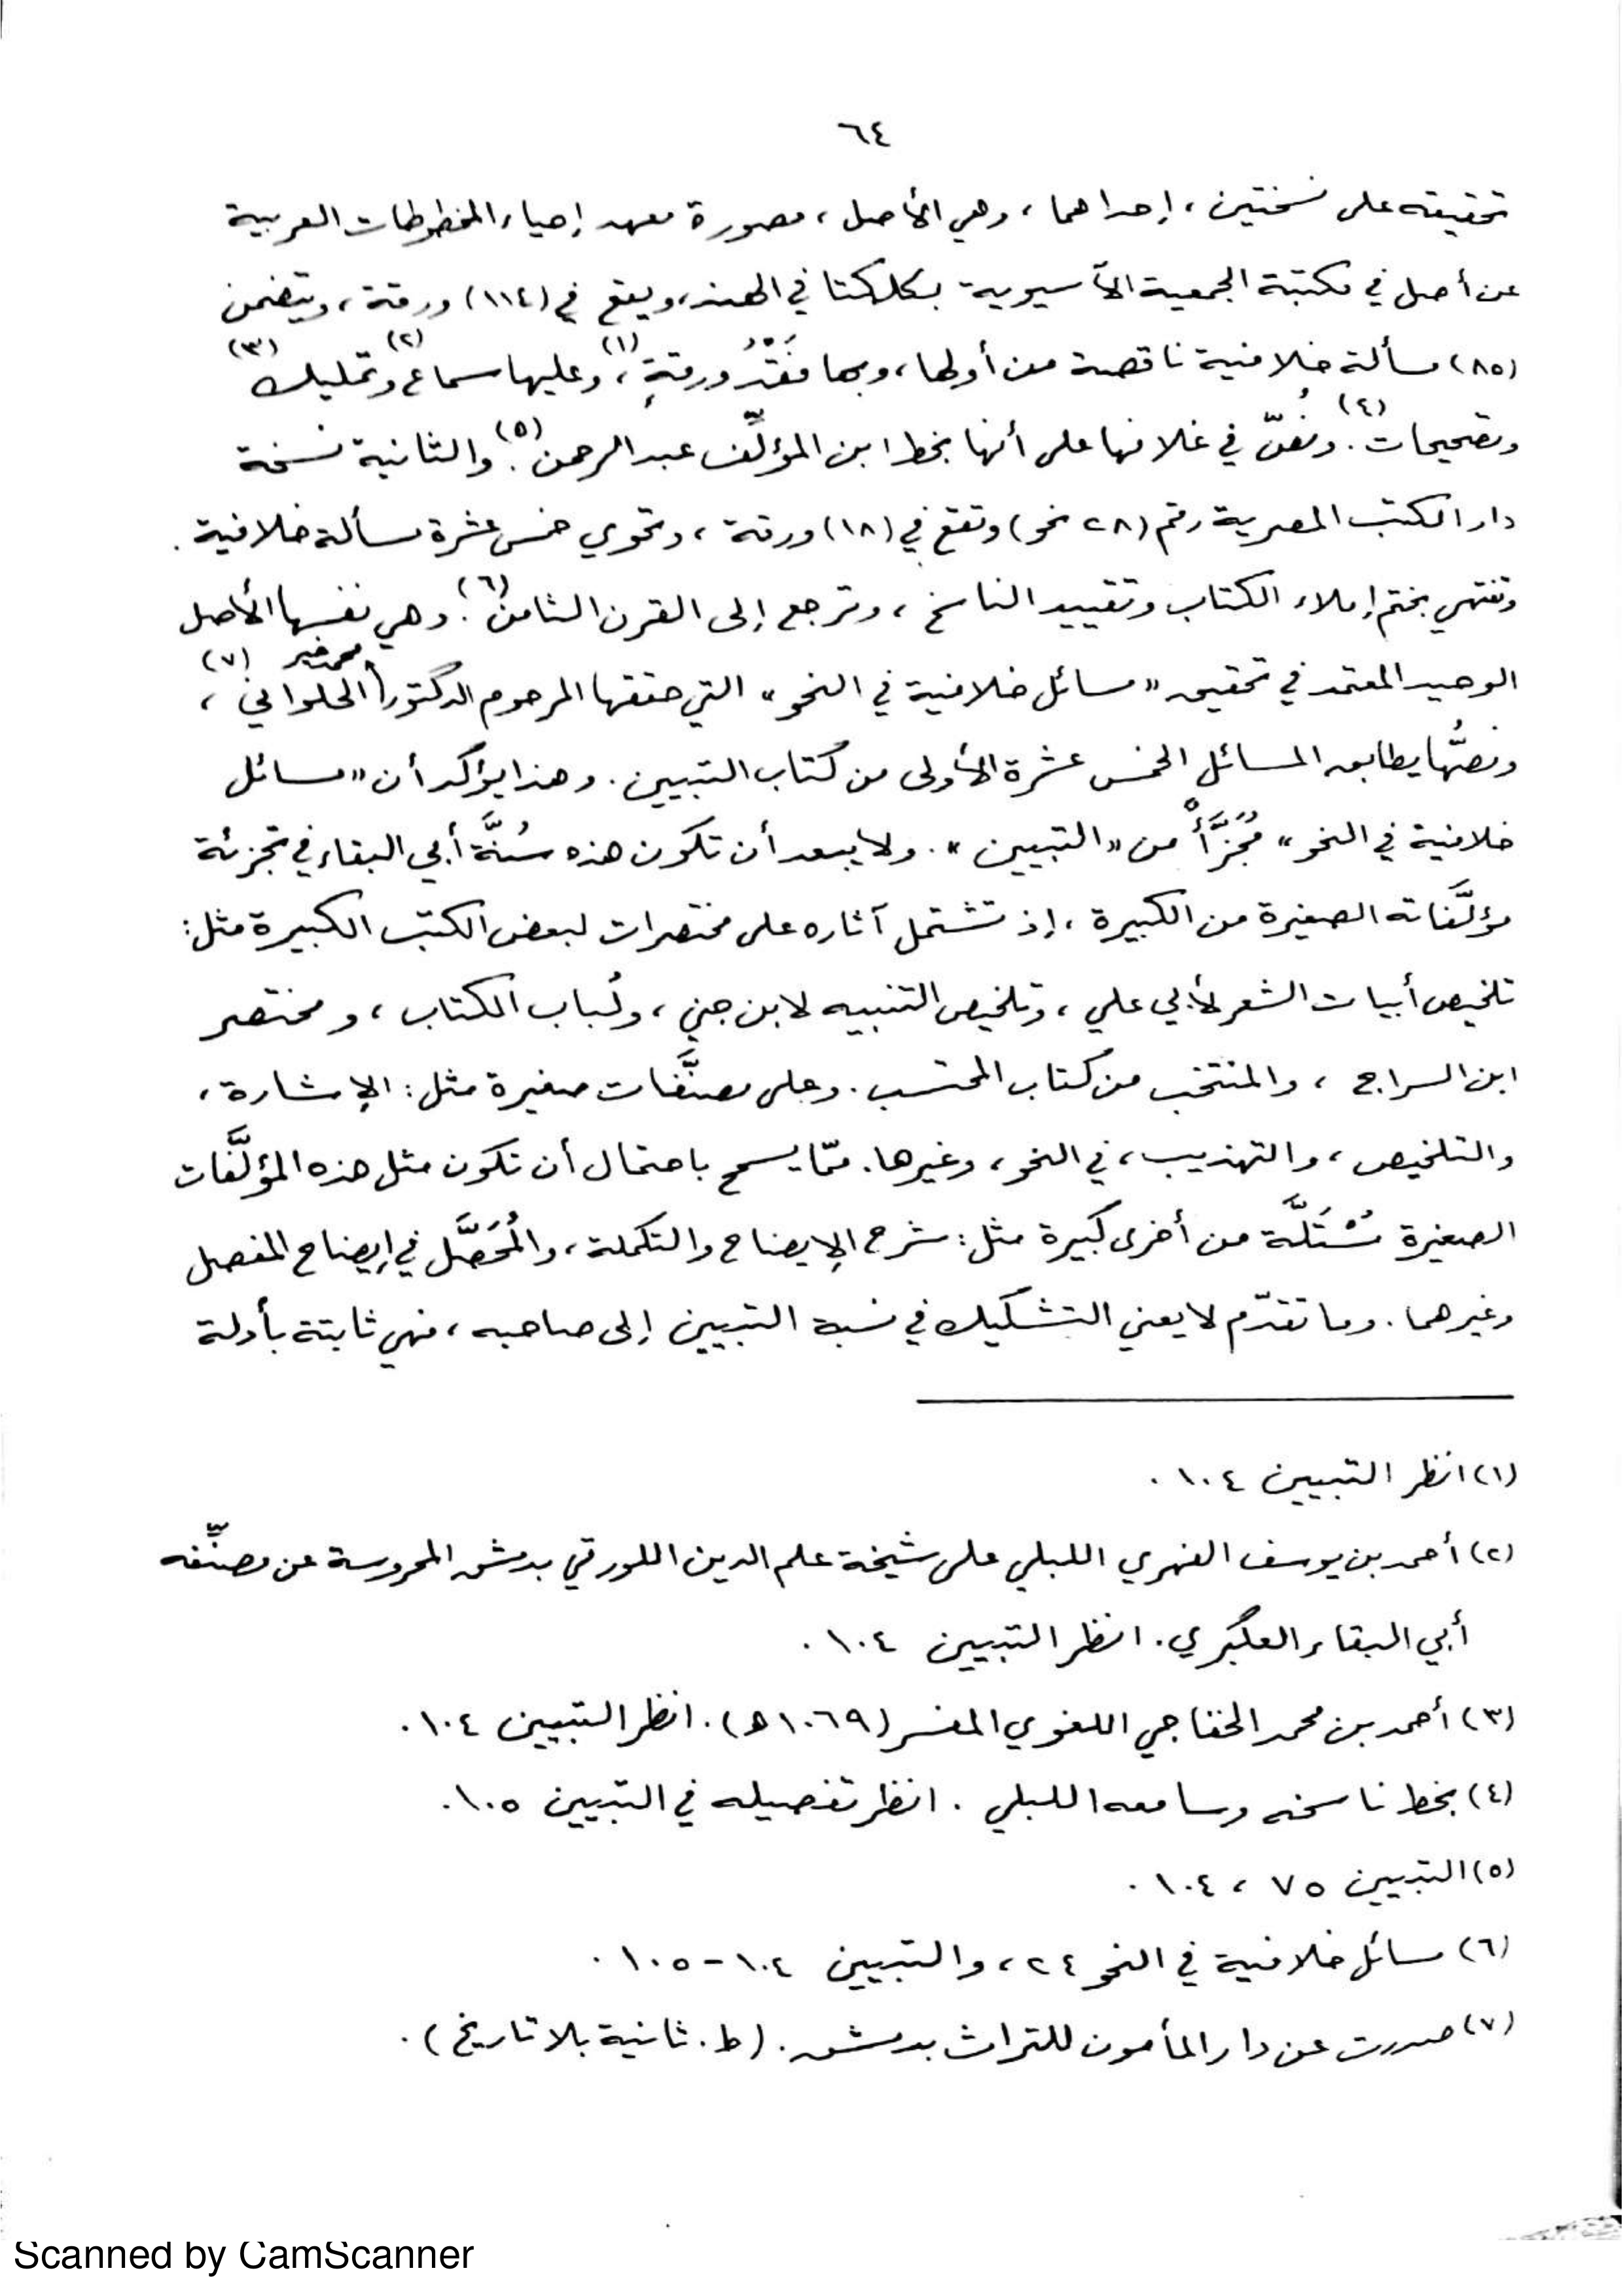 ٦٤
تحقيقه على نسختين، إحداهما، وهي الأصل، مصورة معهد إحياء المخطوطات العربية
عن أصل في مكتبة الجمعية الآسيوية بكلكتا في الهند، ويقع في (١١٤) ورقة، ويتضمن
(٨٥) مسألة خلافية ناقصة من أولها، وبها فَقْدُ ورقةٍ(١)، وعليها سماع(٢) وتمليك(٣)
وتصحيحات(٤). ونُصّ في غلافها على أنها بخط ابن المؤلِّف عبد الرحمن(٥). والثانية نسخة
دار الكتب المصرية رقم (٢٨ نحو) وتقع في (١٨) ورقة، وتحوي خمس عشرة مسألة خلافية.
وتنتهي بختم إملاء الكتاب وتقييد الناسخ، وترجع إلى القرن الثامن(٦). وهي نفسها الأصل
الوحيد المعتمد في تحقيق «مسائل خلافية في النحو» التي حققها المرحوم الدكتور محمد خير الحلواني(٧)،
ونصُّها يطابق المسائل الخمس عشرة الأولى من كتاب التبيين. وهذا يؤكد أن «مسائل
خلافية في النحو» مُجَزَّأٌ من «التبيين». ولا يبعد أن تكون هذه سُنَّة أبي البقاء في تجزئة
مؤلَّفاته الصغيرة من الكبيرة، إذ تشتمل آثاره على مختصرات لبعض الكتب الكبيرة مثل:
تلخيص أبيات الشعر لأبي علي، وتلخيص التنبيه لابن جني، ولُباب الكتاب، ومختصر
ابن السراج، والمنتخب من كتاب المحتسب. وعلى مصنَّفات صغيرة مثل: الإشارة،
والتلخيص، والتهذيب، في النحو، وغيرها. ممّا يسمح باحتمال أن تكون مثل هذه المؤلَّفات
الصغيرة مُسْتَلَّة من أخرى كبيرة مثل: شرح الإيضاح والتكملة، والمُحَصَّل في إيضاح المفصل
وغيرهما. وما تقدّم لا يعني التشكيك في نسبة التبيين إلى صاحبه، فهي ثابتة بأدلة
(١) انظر التبيين ١٠٤.
(٢) أحمد بن يوسف الفهري اللبلي على شيخة علم الدين اللورقي بدمشق المحروسة عن مصنِّفه
أبي البقاء العكبري. انظر التبيين ١٠٤.
(٣) أحمد بن محمد الخفاجي اللغوي المفسر (١٠٦٩ ه). انظر التبيين ١٠٤.
(٤) بخط ناسخه وسامعه اللبلي. انظر تفصيله في التبيين ١٠٥.
(٥) التبيين ٧٥، ١٠٤.
(٦) مسائل خلافية في النحو ٢٤، والتبيين ١٠٤-١٠٥.
(٧) صدرت عن دار المأمون للتراث بدمشق. (ط. ثانية بلا تاريخ).
Scanned by CamScanner